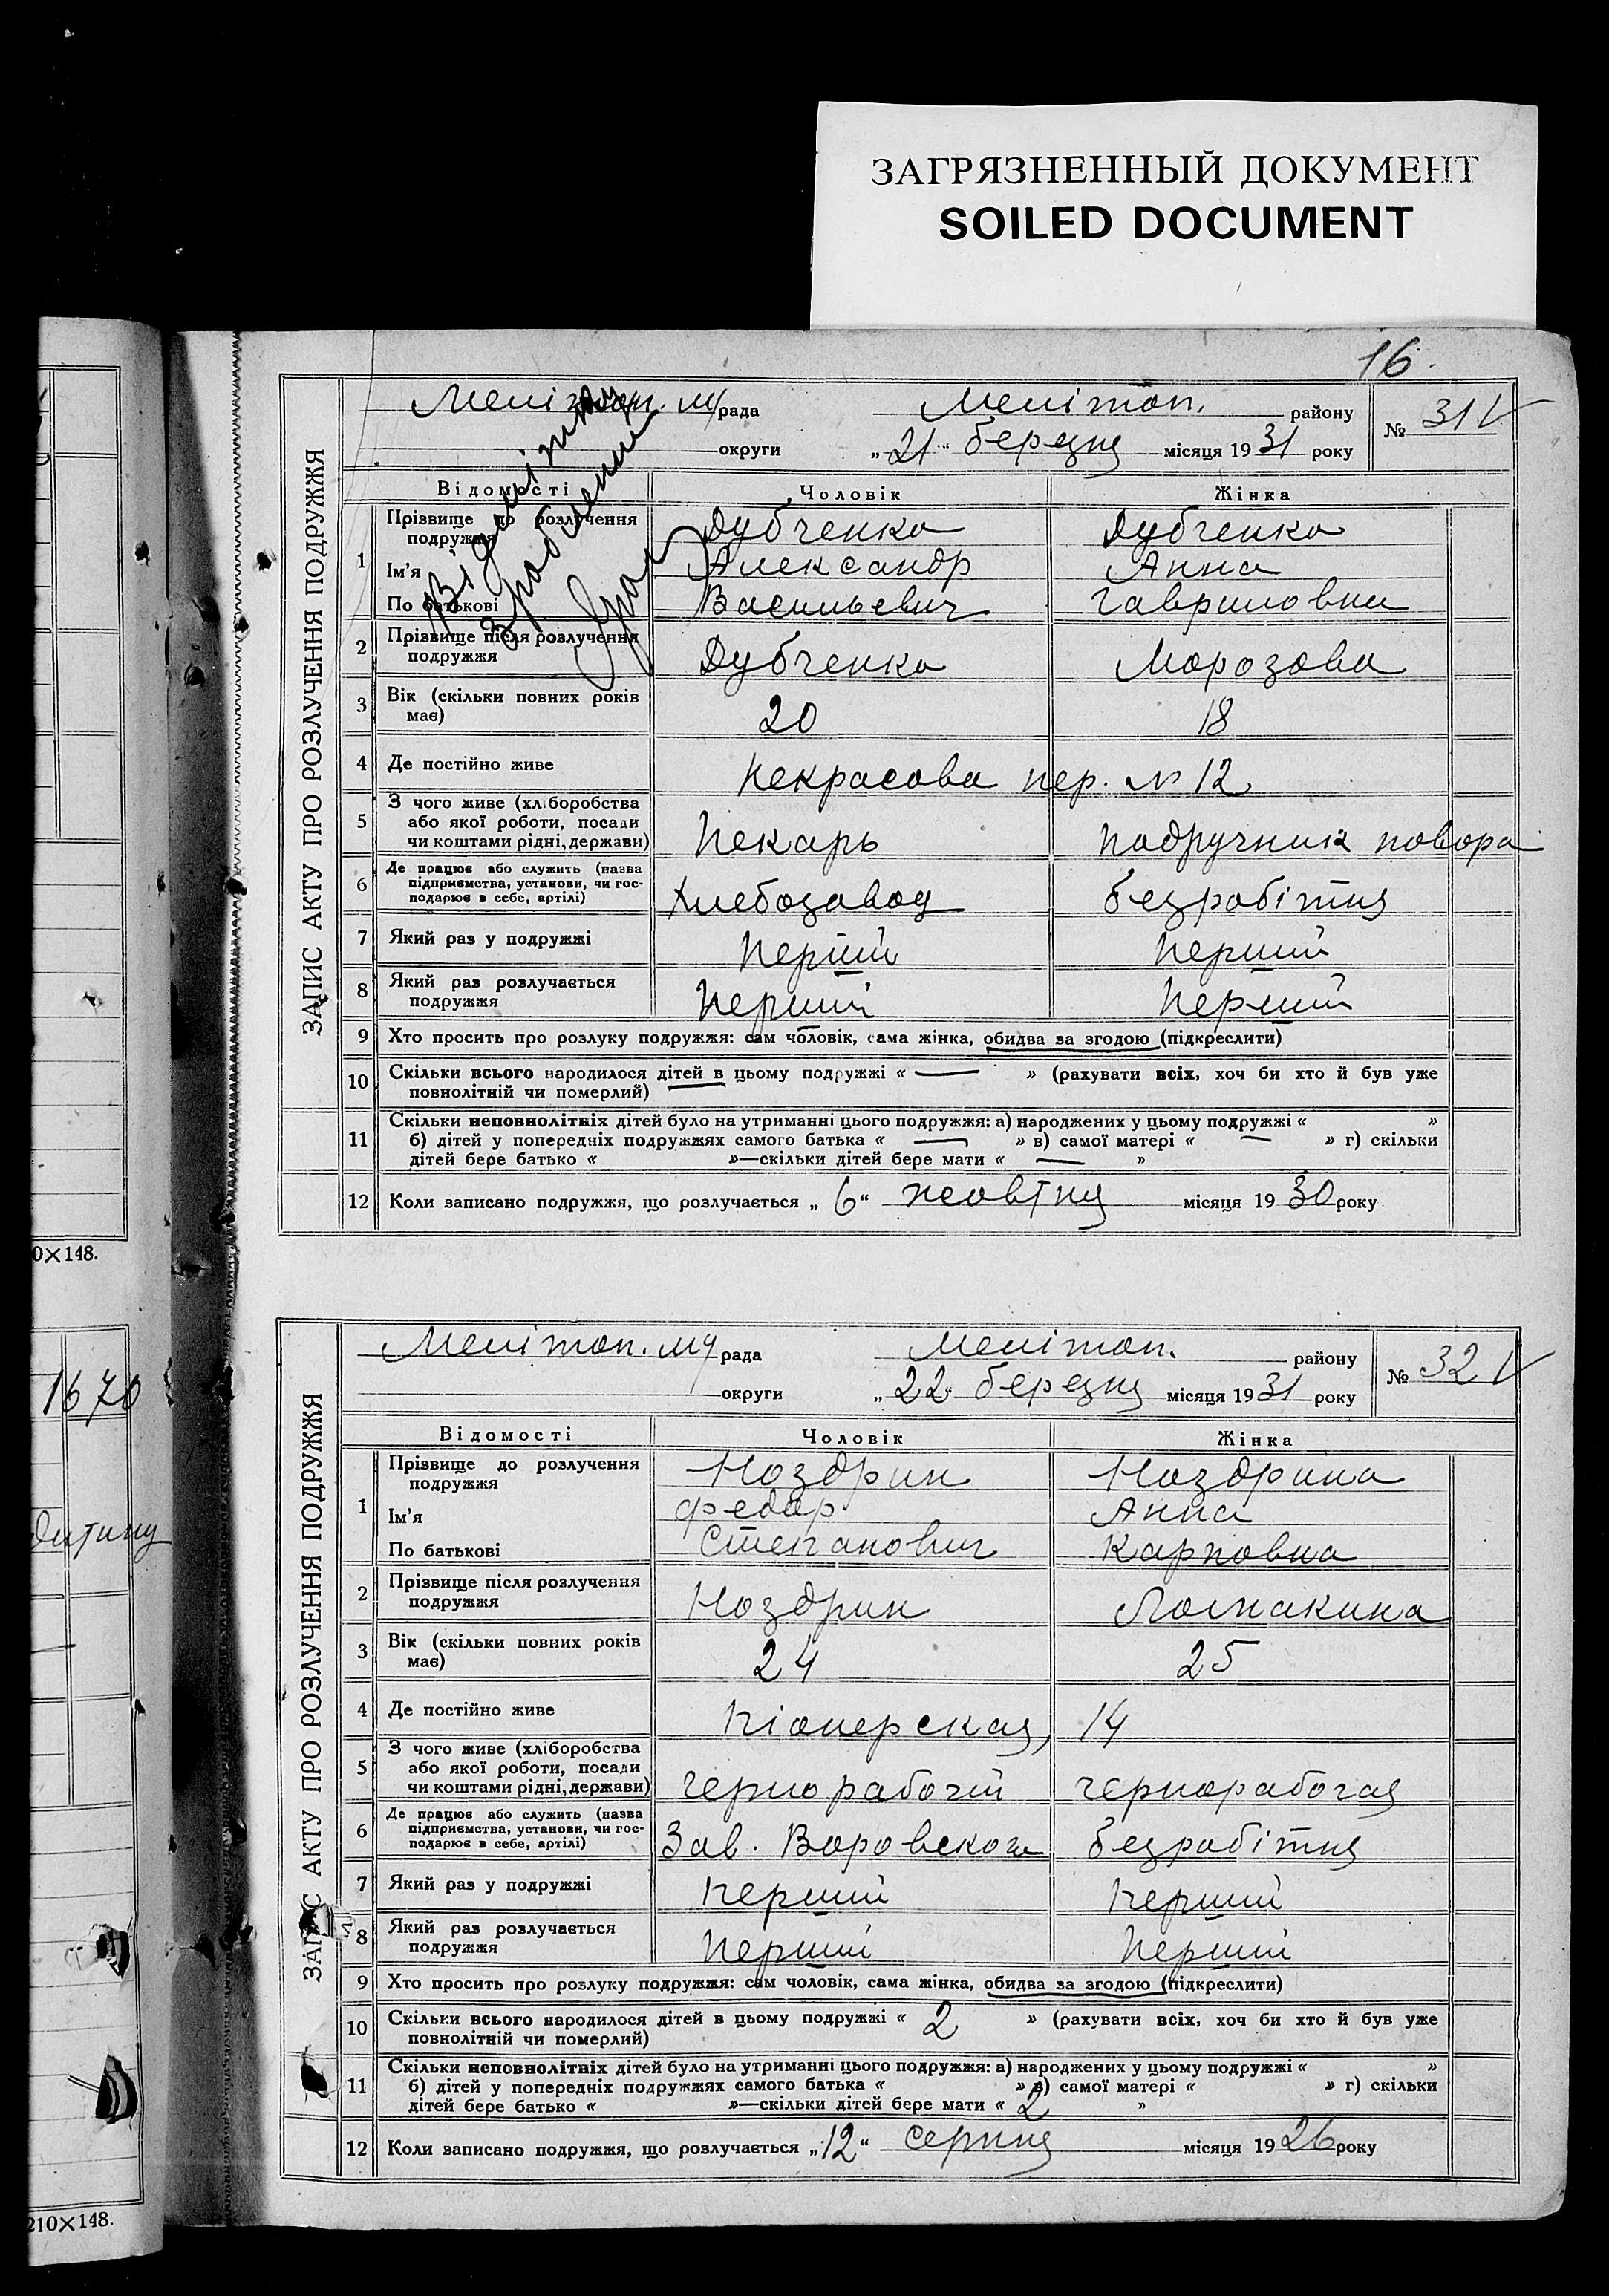 ЗАГРЯЗНЕННЫЙ ДОКУМЕНТ
SOILED DOCUMENT
16.
ЗАПИС АКТУ ПРО РОЗЛУЧЕННЯ ПОДРУЖЖЯ
Меліт рада Мелітоп. району № 31
округи „21" березня місяця 1931 року
Відмітку
зроблений
Відомості Чоловік Жінка
1 Прізвище до розлучення подружжя Дубченко Дубченко
Ім'я Александр Анна
По батькові Васильевич Гавриловна
2 Прізвище після розлучення Дубченко Морозова
подружжя
3 Вік (скільки повних років 20 18
має)
4 Де постійно живе Некрасова пер. № 12
5 З чого живе (хліборобства
або якої роботи, посади Пекарь подручник повора
чи коштами рідні, держави)
6 Де працює або служить (назва
підприємства, установи, чи гос- Хлебозавод безробітня
подарює в себе, артілі)
7 Який раз у подружжі Перший Перший
8 Який раз розлучається Перший Перший
подружжя
9 Хто просить про розлуку подружжя: сам чоловік, сама жінка, обидва за згодою (підкреслити)
10 Скільки всього народилося дітей в цьому подружжі « — » (рахувати всіх, хоч би хто й був уже
повнолітній чи померлий)
11 Скільки неповнолітніх дітей було на утриманні цього подружжя: а) народжених у цьому подружжі « »
б) дітей у попередніх подружжях самого батька « — » в) самої матері « — » г) скільки
дітей бере батько « »—скільки дітей бере мати « — »
12 Коли записано подружжя, що розлучається „6" жовтня місяця 1930 року
0×148.
ЗАПИС АКТУ ПРО РОЗЛУЧЕННЯ ПОДРУЖЖЯ
Мелітоп. рада Мелітоп. району № 32
округи „22" березня місяця 1931 року
1670
Відомості Чоловік Жінка
1 Прізвище до розлучення Ноздрин Ноздрина
подружжя
Ім'я Федор Анна
По батькові Степанович Карповна
дитину
2 Прізвище після розлучення Ноздрин Ломакина
подружжя
3 Вік (скільки повних років 24 25
має)
4 Де постійно живе Піонерская, 14
5 З чого живе (хліборобства
або якої роботи, посади чернорабочій чернорабочая
чи коштами рідні, держави)
6 Де працює або служить (назва
підприємства, установи, чи гос- Зав. Воровского безробітня
подарює в себе, артілі)
7 Який раз у подружжі Перший Перший
8 Який раз розлучається Перший Перший
подружжя
9 Хто просить про розлуку подружжя: сам чоловік, сама жінка, обидва за згодою (підкреслити)
10 Скільки всього народилося дітей в цьому подружжі « 2 » (рахувати всіх, хоч би хто й був уже
повнолітній чи померлий)
11 Скільки неповнолітніх дітей було на утриманні цього подружжя: а) народжених у цьому подружжі « »
б) дітей у попередніх подружжях самого батька « » в) самої матері « » г) скільки
дітей бере батько « »—скільки дітей бере мати « 2 »
12 Коли записано подружжя, що розлучається „12" серпня місяця 1926 року
210×148.